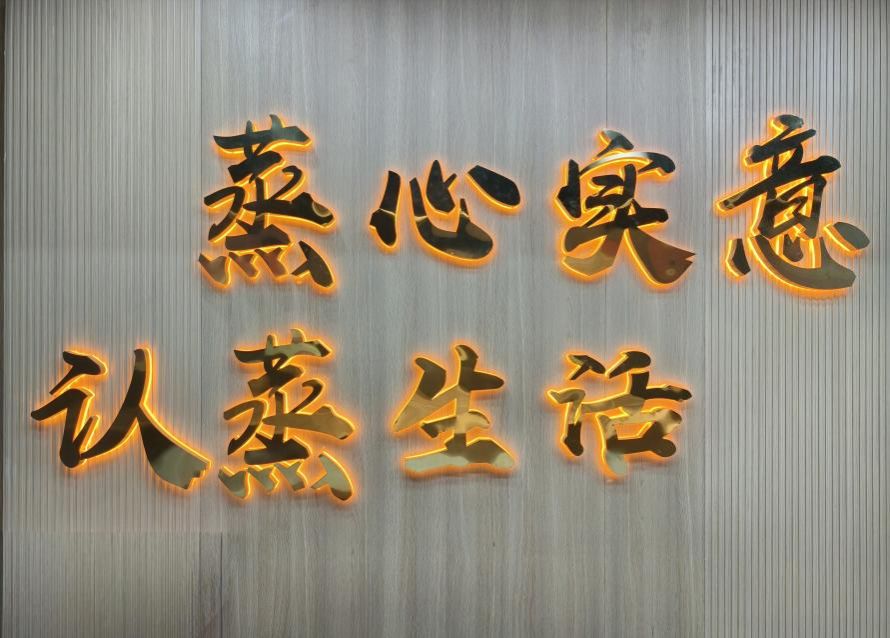 蒸心实意
认蒸生活